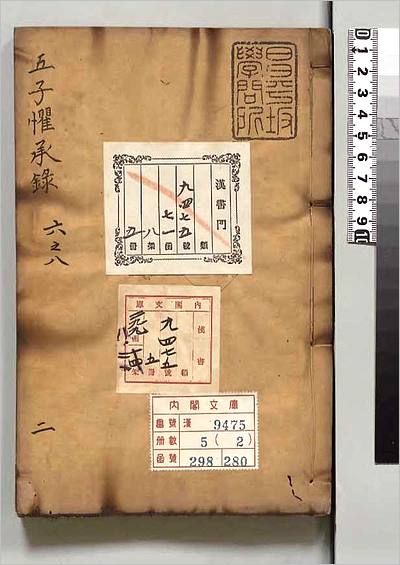 五子懼承錄
六之八
二
昌平坂
學問所
漢書門
類
九四七五
號
七一
函
八
架
五
冊
內閣文庫
漢書
九四七五
類
號
五
冊
函
架
內閣文庫
番號 漢 9475
冊數 5 ( 2 )
函號 298 280
0 1 2 3 4 5 6 7 8 9 10